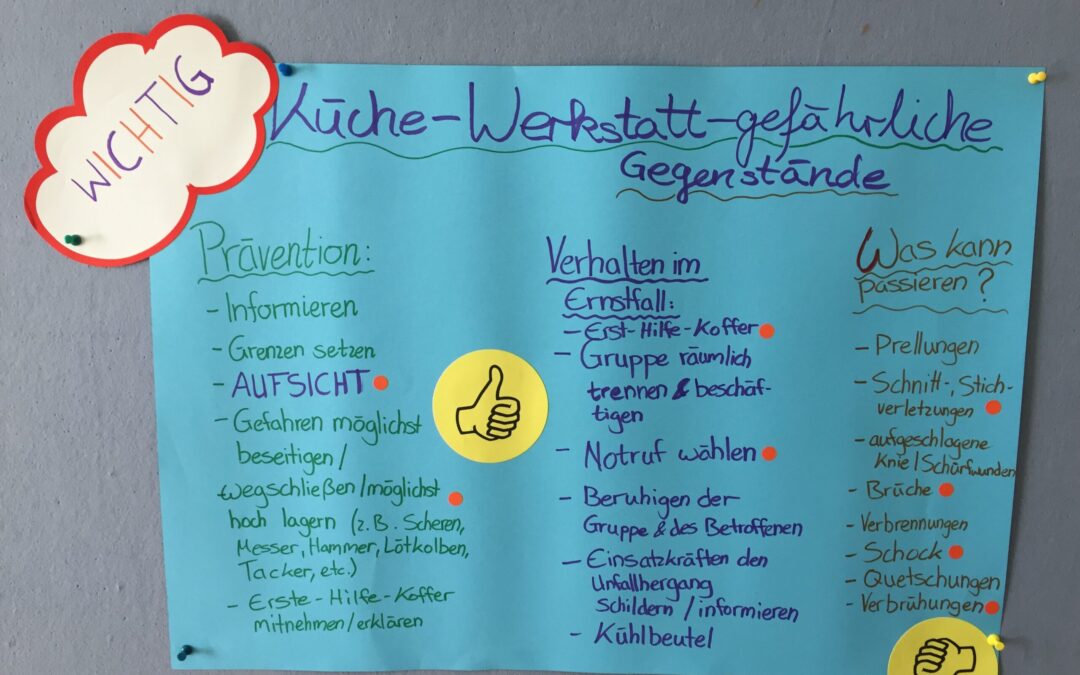 WICHTIG
Küche-Werkstatt-gefährliche
Gegenstände
Prävention:
- Informieren
- Grenzen setzen
- AUFSICHT
- Gefahren möglichst
beseitigen/
wegschließen/möglichst
hoch lagern (z.B. Scheren,
Messer, Hammer, Lötkolben,
Tacker, etc.)
- Erste-Hilfe-Koffer
mitnehmen/erklären
Verhalten im
Ernstfall:
- Erst-Hilfe-Koffer
- Gruppe räumlich
trennen & beschäf-
tigen
- Notruf wählen
- Beruhigen der
Gruppe & des Betroffenen
- Einsatzkräften den
Unfallhergang
schildern/informieren
- Kühlbeutel
Was kann
passieren?
- Prellungen
- Schnitt-, Stich-
verletzungen
- aufgeschlagene
Knie/Schürfwunden
- Brüche
- Verbrennungen
- Schock
- Quetschungen
- Verbrühungen